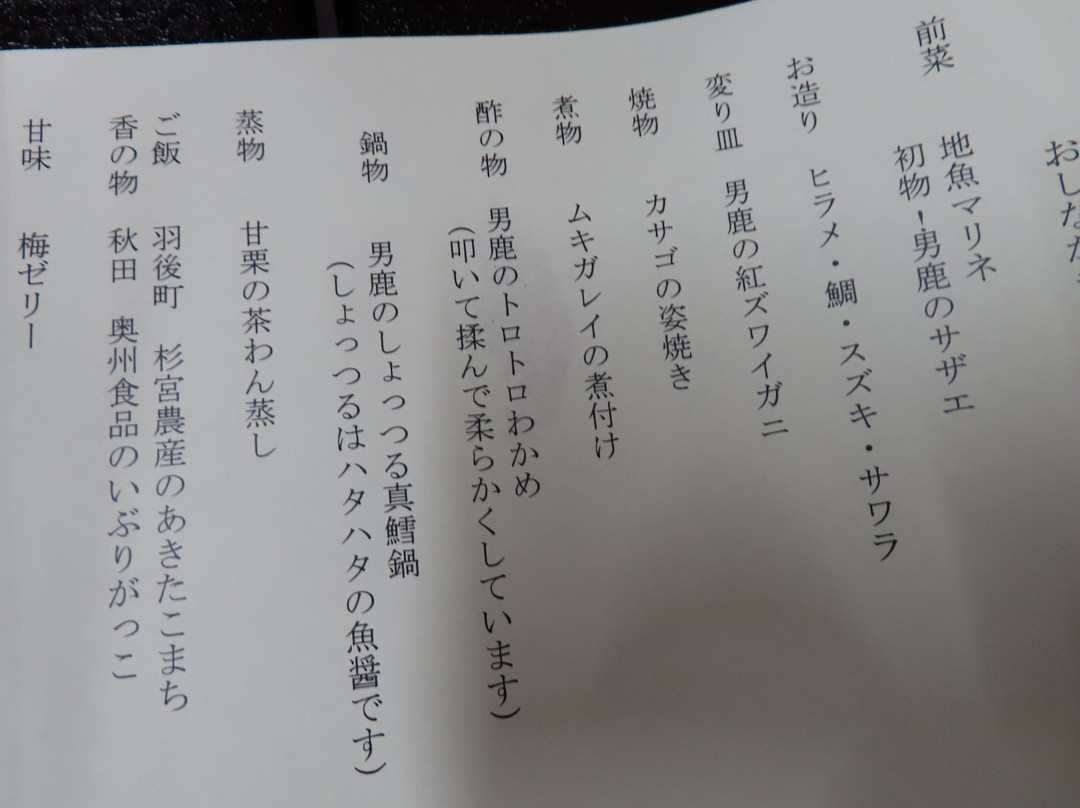 おしなが
前菜 地魚マリネ
初物！男鹿のサザエ
お造り ヒラメ・鯛・スズキ・サワラ
変り皿 男鹿の紅ズワイガニ
焼物 カサゴの姿焼き
煮物 ムキガレイの煮付け
酢の物 男鹿のトロトロわかめ
(叩いて揉んで柔らかくしています)
鍋物 男鹿のしょっつる真鱈鍋
(しょっつるはハタハタの魚醤です)
蒸物 甘栗の茶わん蒸し
ご飯 羽後町 杉宮農産のあきたこまち
香の物 秋田 奥州食品のいぶりがっこ
甘味 梅ゼリー